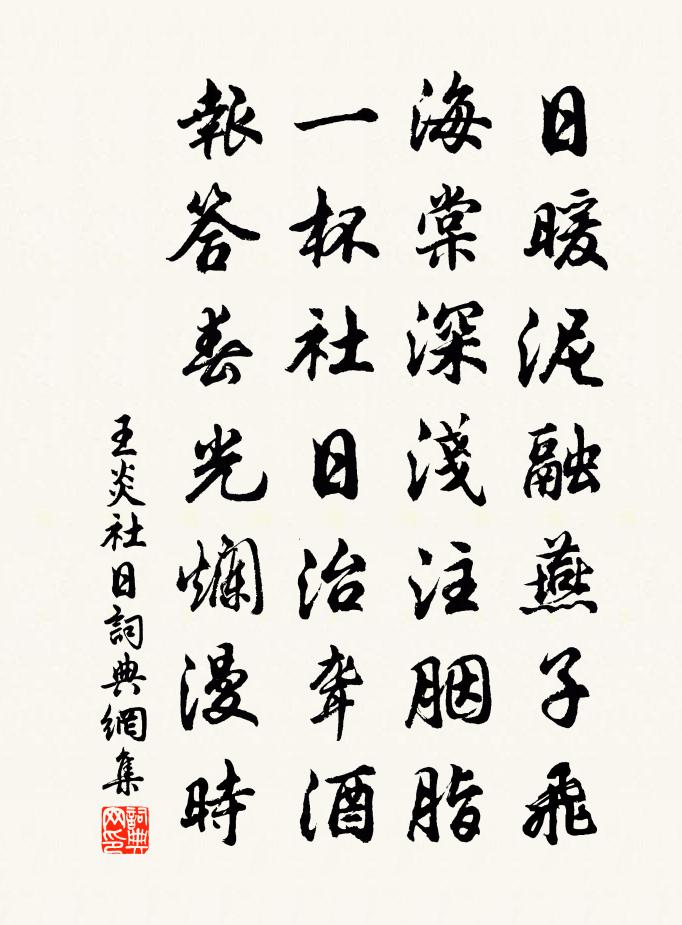 日暖泥融燕子飛
海棠深淺注胭脂
一杯社日治聾酒
報答春光爛漫時
王炎社日詞典網集
詞典网印